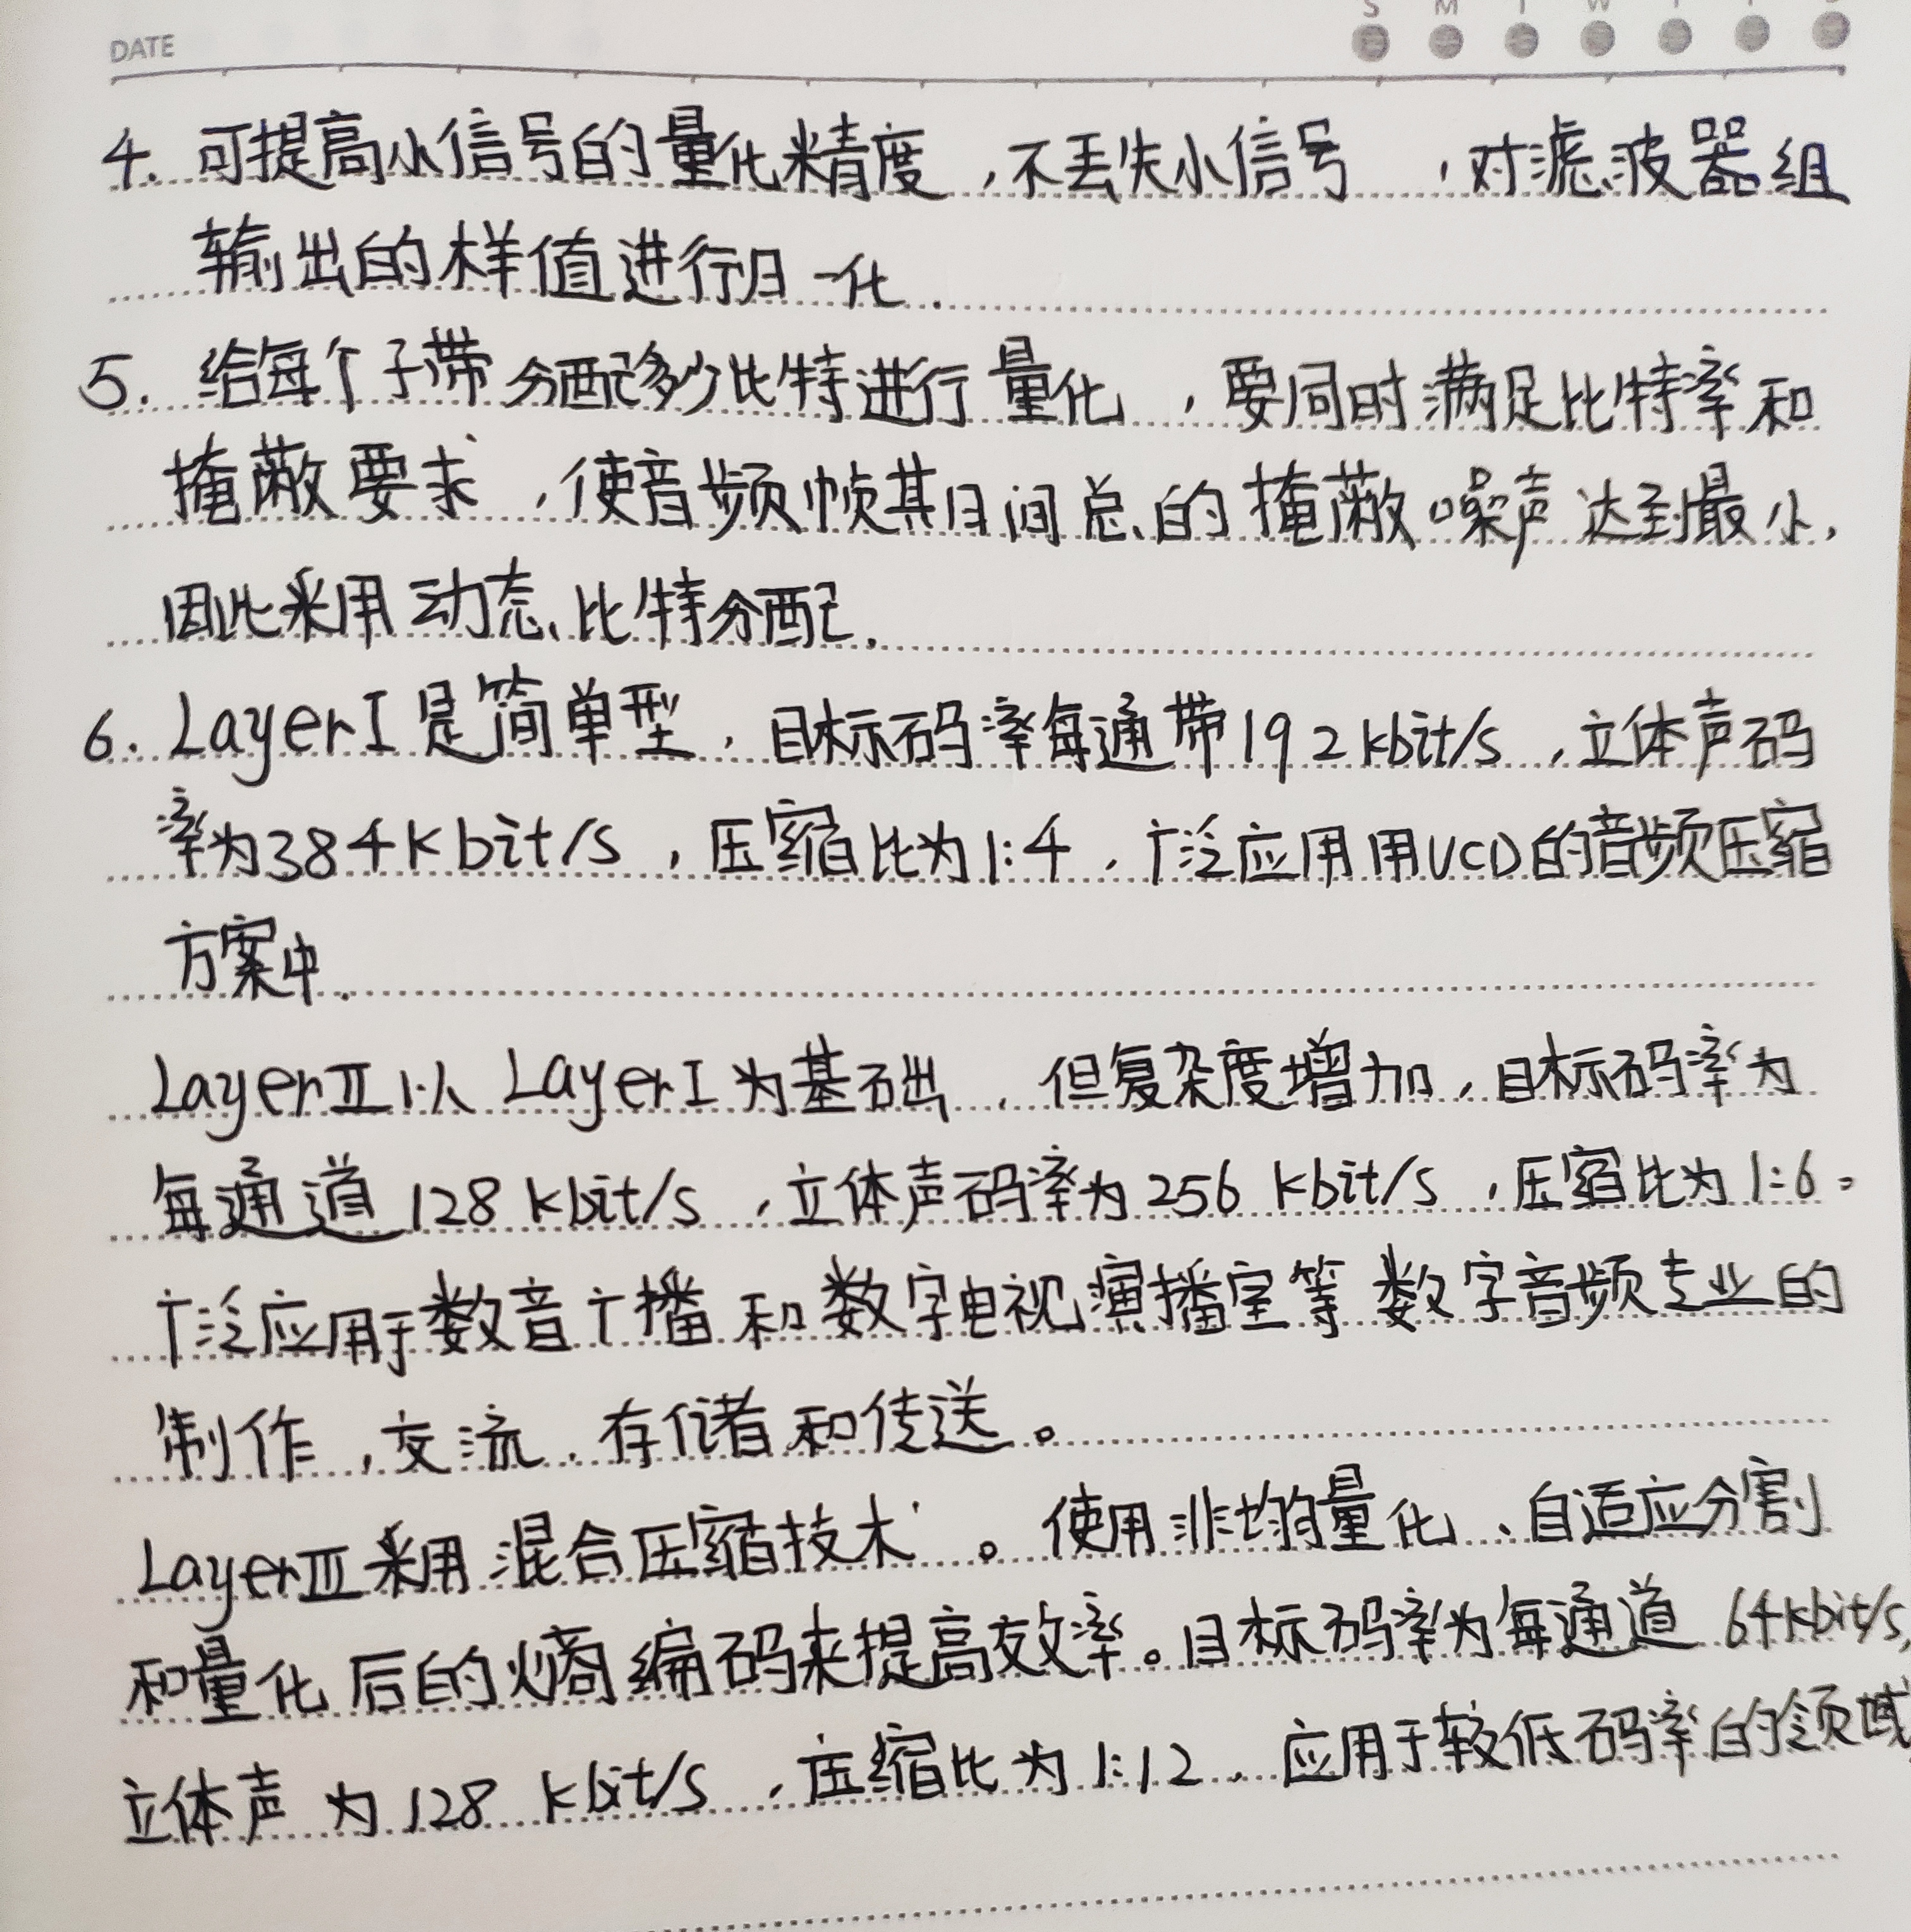 DATE
S M T W T F S
4. 可提高小信号的量化精度,不丢失小信号,对滤波器组
输出的样值进行归一化.
5. 给每个子带分配多少比特进行量化,要同时满足比特率和
掩蔽要求,使音频帧其月间总的掩蔽噪声达到最小,
因此采用动态比特分配.
6. LayerI是简单型,目标码率每通带192kbit/s,立体声码
率为384Kbit/s,压缩比为1:4,广泛应用用VCD的音频压缩
方案中.
LayerⅡ以LayerI为基础,但复杂度增加,目标码率为
每通道128kbit/s,立体声码率为256kbit/s,压缩比为1:6。
广泛应用于数音广播和数字电视演播室等数字音频专业的
制作,交流,存储和传送。
LayerⅢ采用混合压缩技术。使用非均匀量化、自适应分割
和量化后的熵编码来提高效率。目标码率为每通道64kbit/s,
立体声为128kbit/s,压缩比为1:12,应用于较低码率的领域